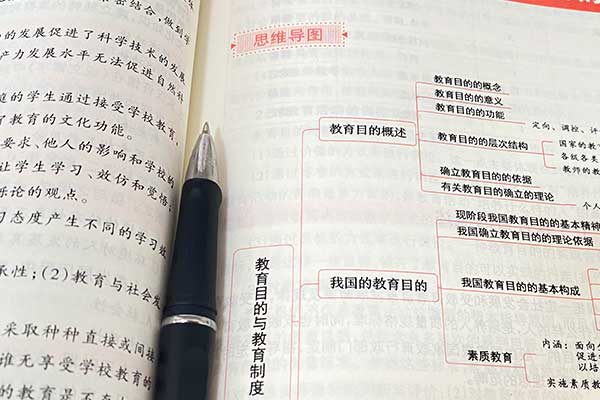 密结合,做到学
的发展促进了科学技术的发展
产力发展水平无法促进自然科
庭的学生通过接受学校教育,
了教育的文化功能。
要求、他人的影响和学校的
让学生学习、效仿和觉悟;
际论的观点。
习态度产生不同的学习效
承性;(2)教育与社会发
采取种种直接或间接
谁无享受学校教育的
的教育是不
思维导图
教育目的的概念
教育目的的意义
教育目的的功能
定向、调控、评
教育目的概述
教育目的的层次结构
国家的教
各级各类
教师的教
确立教育目的的依据
有关教育目的确立的理论
个人
现阶段我国教育目的的基本精神
我国确立教育目的的理论依据
我国的教育目的
我国教育目的的基本构成
素质教育
内涵:面向全
促进
以培
实施素质教
教育目的与教育制度